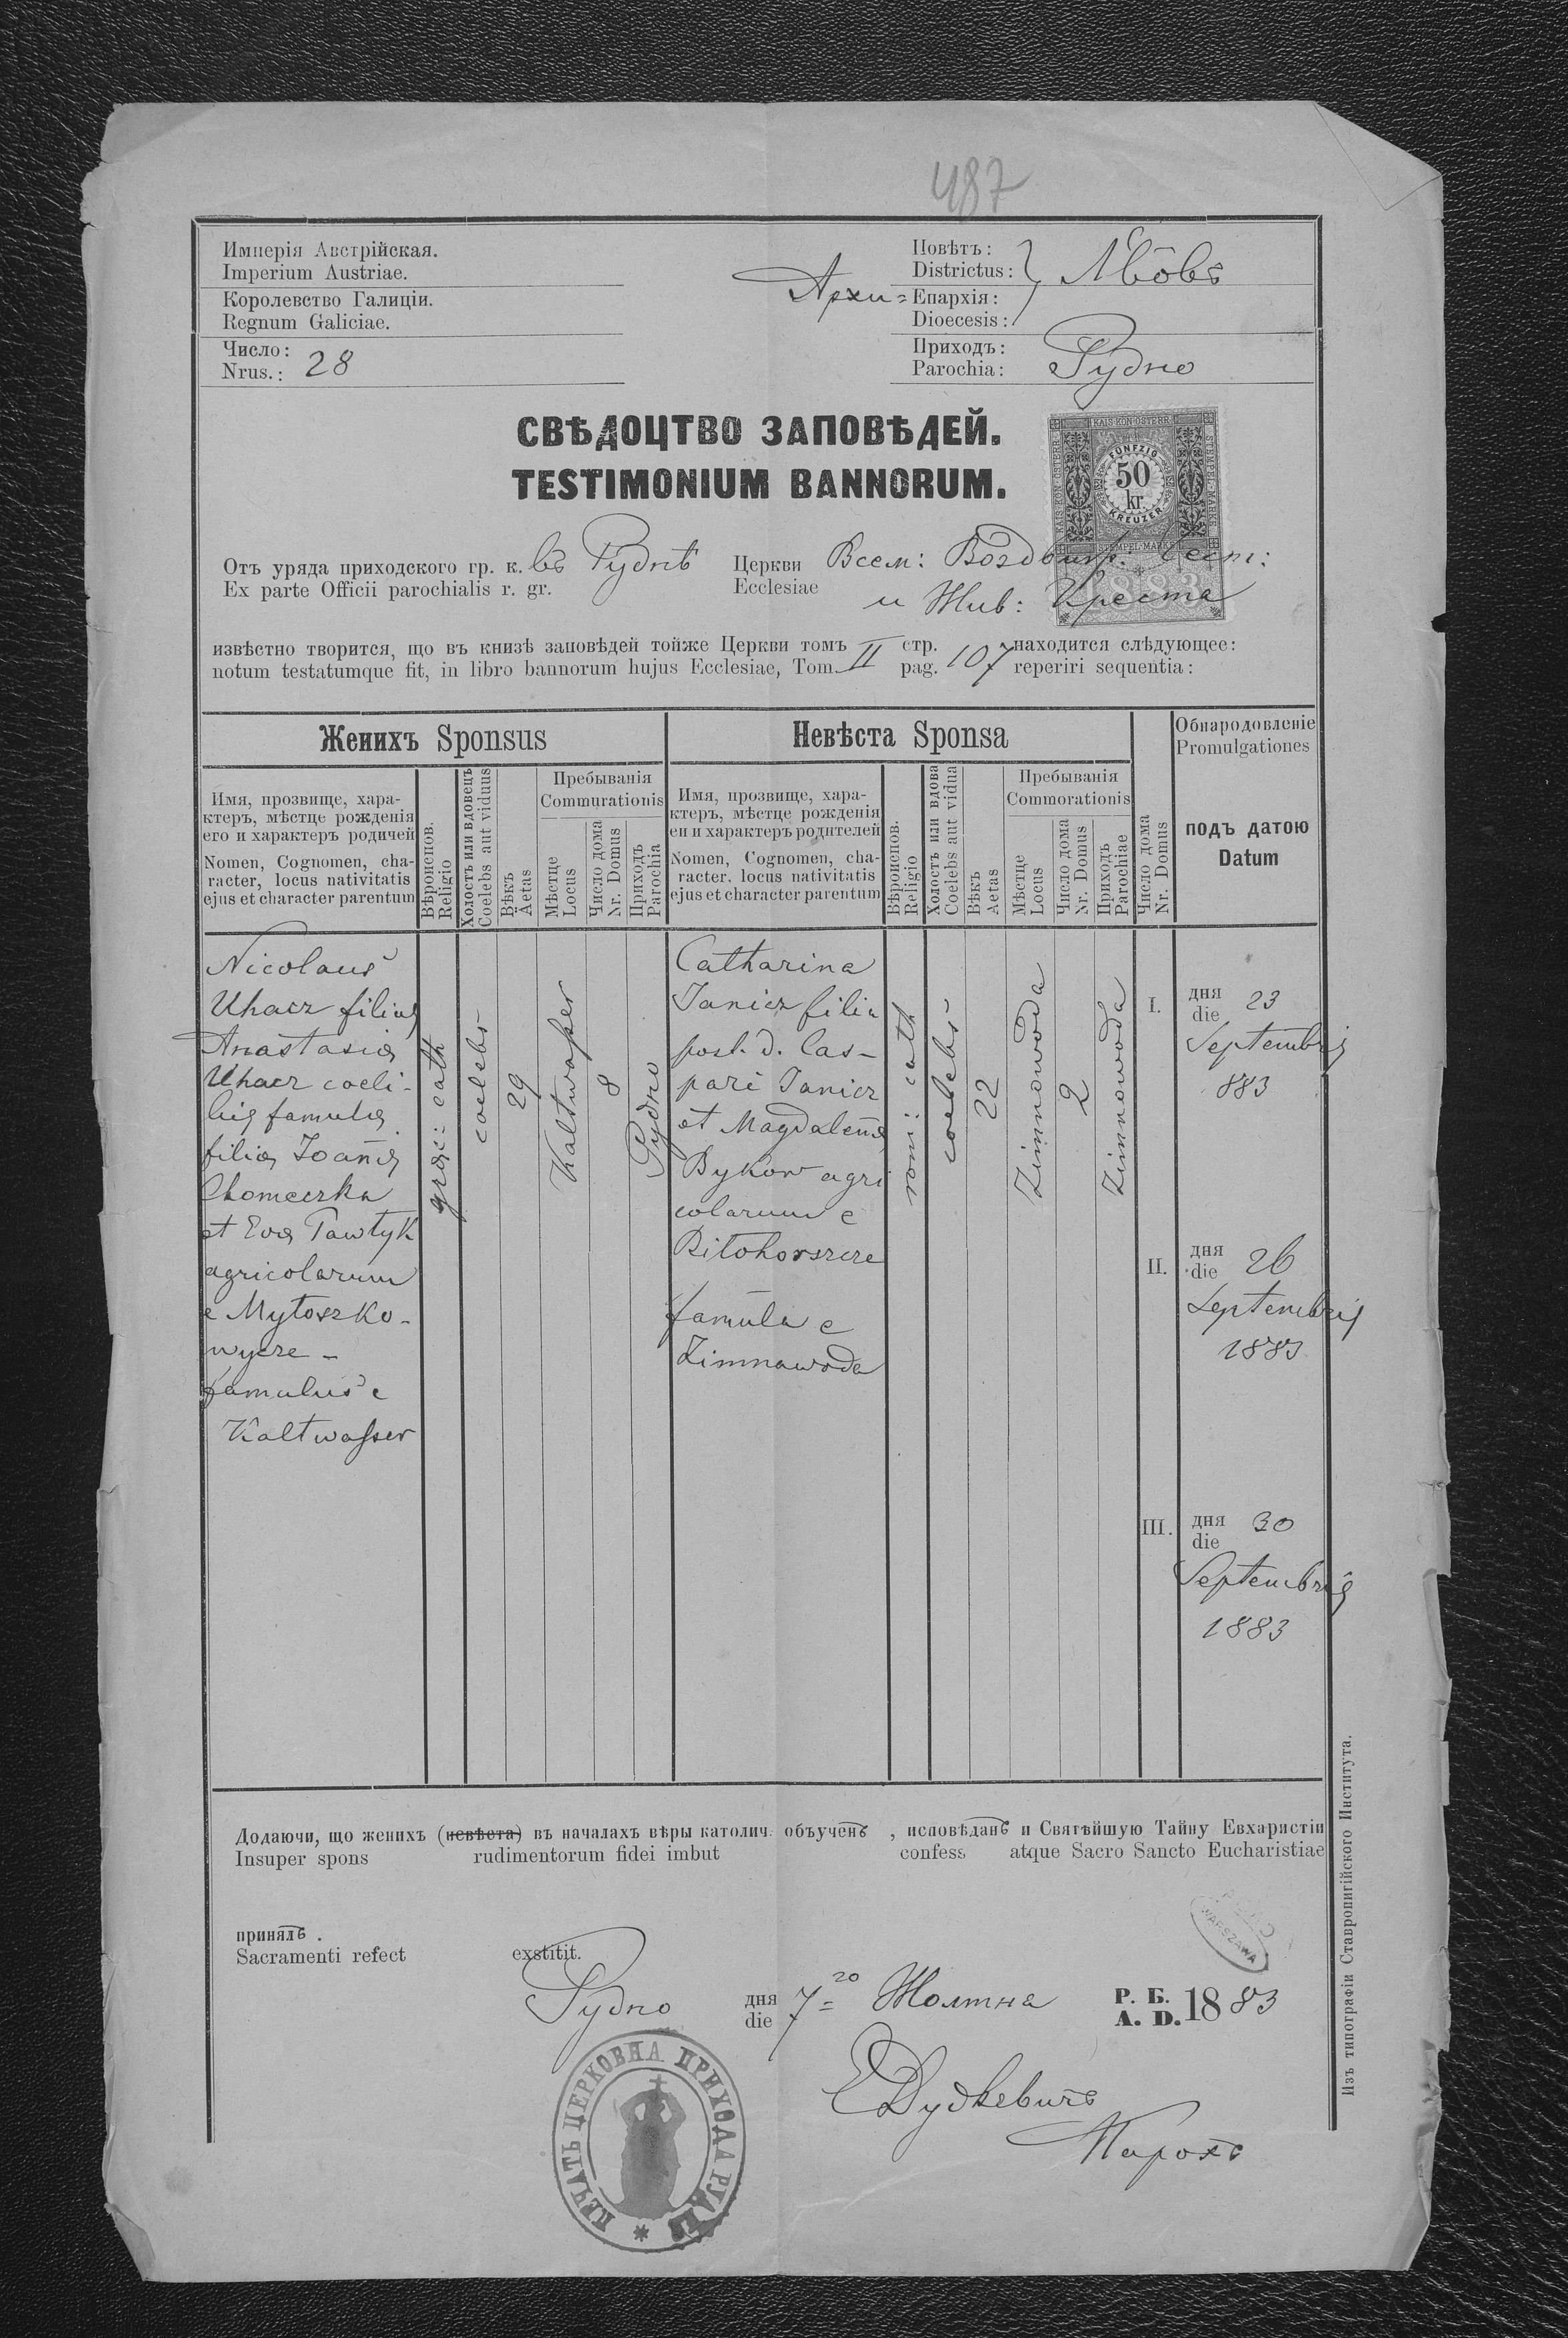 487
Имперія Австрійская.
Imperium Austriae.
Королевство Галиціи.
Regnum Galiciae.
Число:
Nrus.: 28
Повѣтъ:
Districtus: Львôвъ
Архи= Епархія:
Dioecesis:
Приходъ:
Parochia: Рудно
СВѢДОЦТВО ЗАПОВѢДЕЙ.
TESTIMONIUM BANNORUM.
KAIS. KÖN. ÖSTERR.
STEMPEL-MARKE
FÜNFZIG
50
kr.
KREUZER
STEMPEL-MARKE
1883
Отъ уряда приходского гр. к. въ Руднѣ Церкви Всем: Воздвиж. Чест:
Ex parte Officii parochialis r. gr. Ecclesiae и Жив: Креста
извѣстно творится, що въ книзѣ заповѣдей тойже Церкви томъ II стр. 107 находится слѣдующее:
notum testatumque fit, in libro bannorum hujus Ecclesiae, Tom. pag. reperiri sequentia:
Женихъ Sponsus
Невѣста Sponsa
Обнародовленіе
Promulgationes
подъ датою
Datum
Имя, прозвище, хара-
ктеръ, мѣстце рожденія
его и характеръ родичей
Nomen, Cognomen, cha-
racter, locus nativitatis
ejus et character parentum
Вѣроиспов.
Religio
Холостъ или вдовецъ
Coelebs aut viduus
Вѣкъ
Aetas
Пребыванія
Commurationis
Мѣстце
Locus
Число дома
Nr. Domus
Приходъ
Parochia
Имя, прозвище, хара-
ктеръ, мѣстце рожденія
еи и характеръ родителей
Nomen, Cognomen, cha-
racter, locus nativitatis
ejus et character parentum
Вѣроиспов.
Religio
Холостъ или вдова
Coelebs aut vidua
Вѣкъ
Aetas
Пребыванія
Commorationis
Мѣстце
Locus
Число дома
Nr. Domus
Приходъ
Parochiae
Число дома
Nr. Domus
Nicolaus
Uhacz filius
Anastasia
Uhacz coeli-
bis famula
filia Joānis
Chomeczka
et Eva Pawłyk
agricolarum
e Myłoszko-
wycze -
famulus e
Kaltwasser
graec: cath
coelebs
29
Kaltwasser
8
Рудно
Catharina
Janicz filia
post. d. Cas-
pari Janicz
et Magdalena
Bykow agri
colarum e
Bitohorszcze
famula e
Zimnawoda
rom: cath
coelebs
22
Zimnowoda
2
Zimnowoda
I. дня
die 23
Septembris
883
II. дня
die 26
Septembris
1883
III. дня
die 30
Septembris
1883
Додаючи, що женихъ (невѣста) въ началахъ вѣры католич. обѣученъ, исповѣданъ и Святѣйшую Тайну Евхаристіи
Insuper spons rudimentorum fidei imbut confess atque Sacro Sancto Eucharistiae
принялъ.
Sacramenti refect exstitit.
WARSZAWA
Рудно дня
die 7=го Жолтня Р. Б.
A. D. 1883
Е Дудкевичъ
Парохъ
ПЕЧАТЬ ЦЕРКОВНА ПРИХОДА
Изъ типографіи Ставропигійского Института.